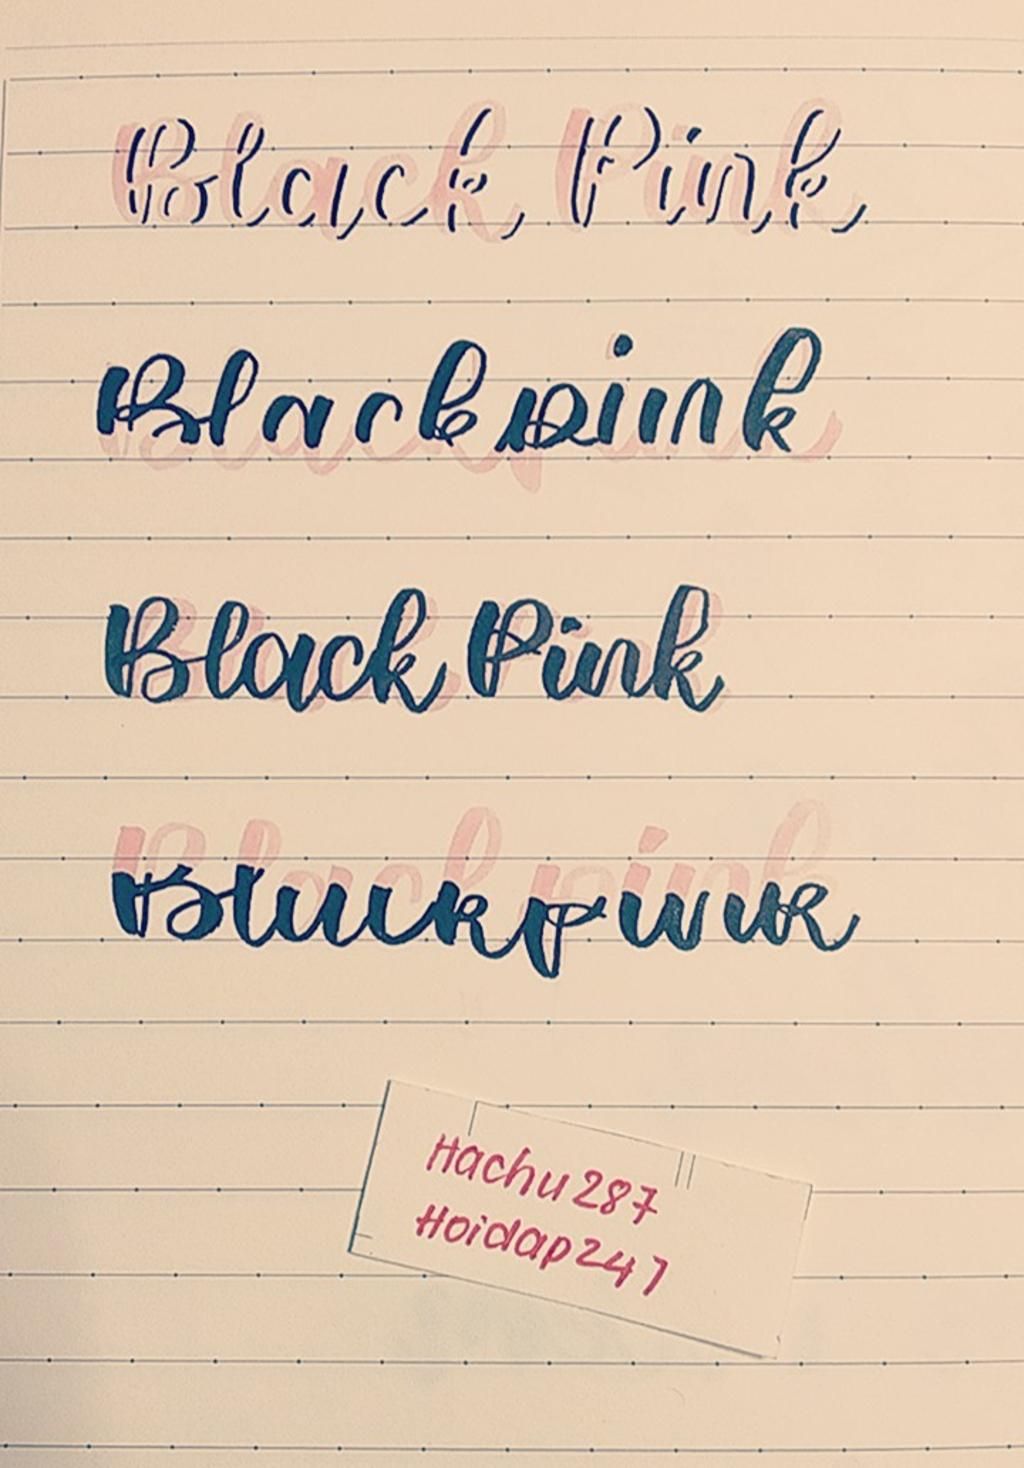 Black Pink
Blackpink
Black Pink
Blackpink
Hachu287
Hoidap247